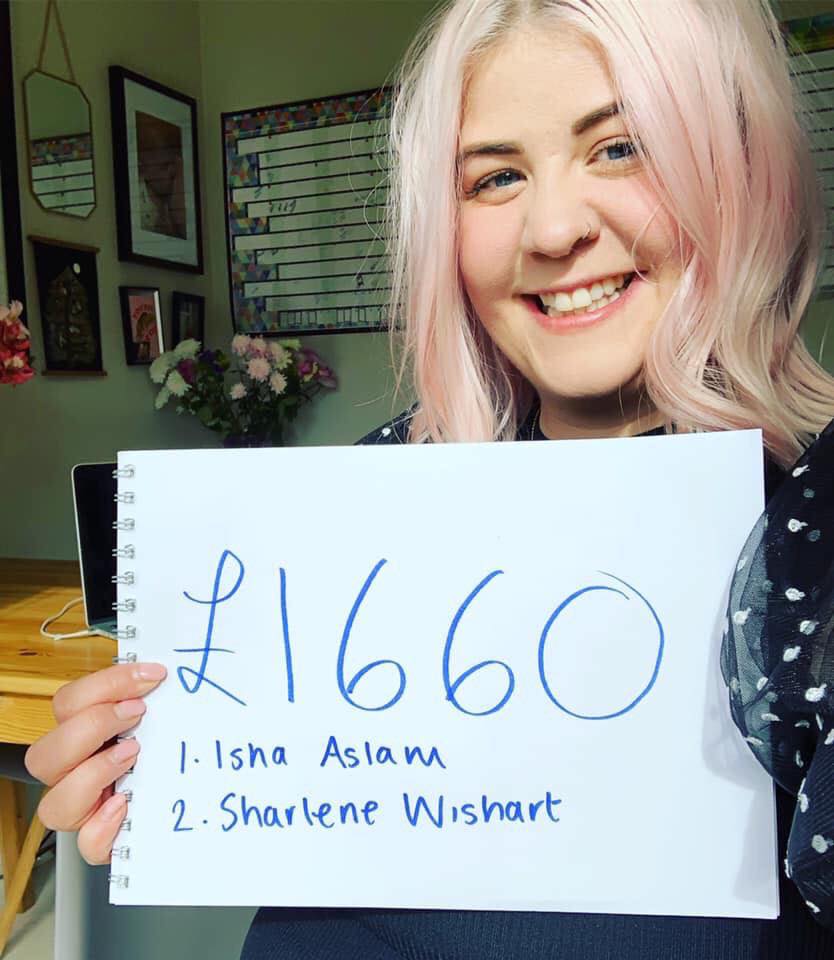 £1660
1. Isha Aslam
2. Sharlene Wishart